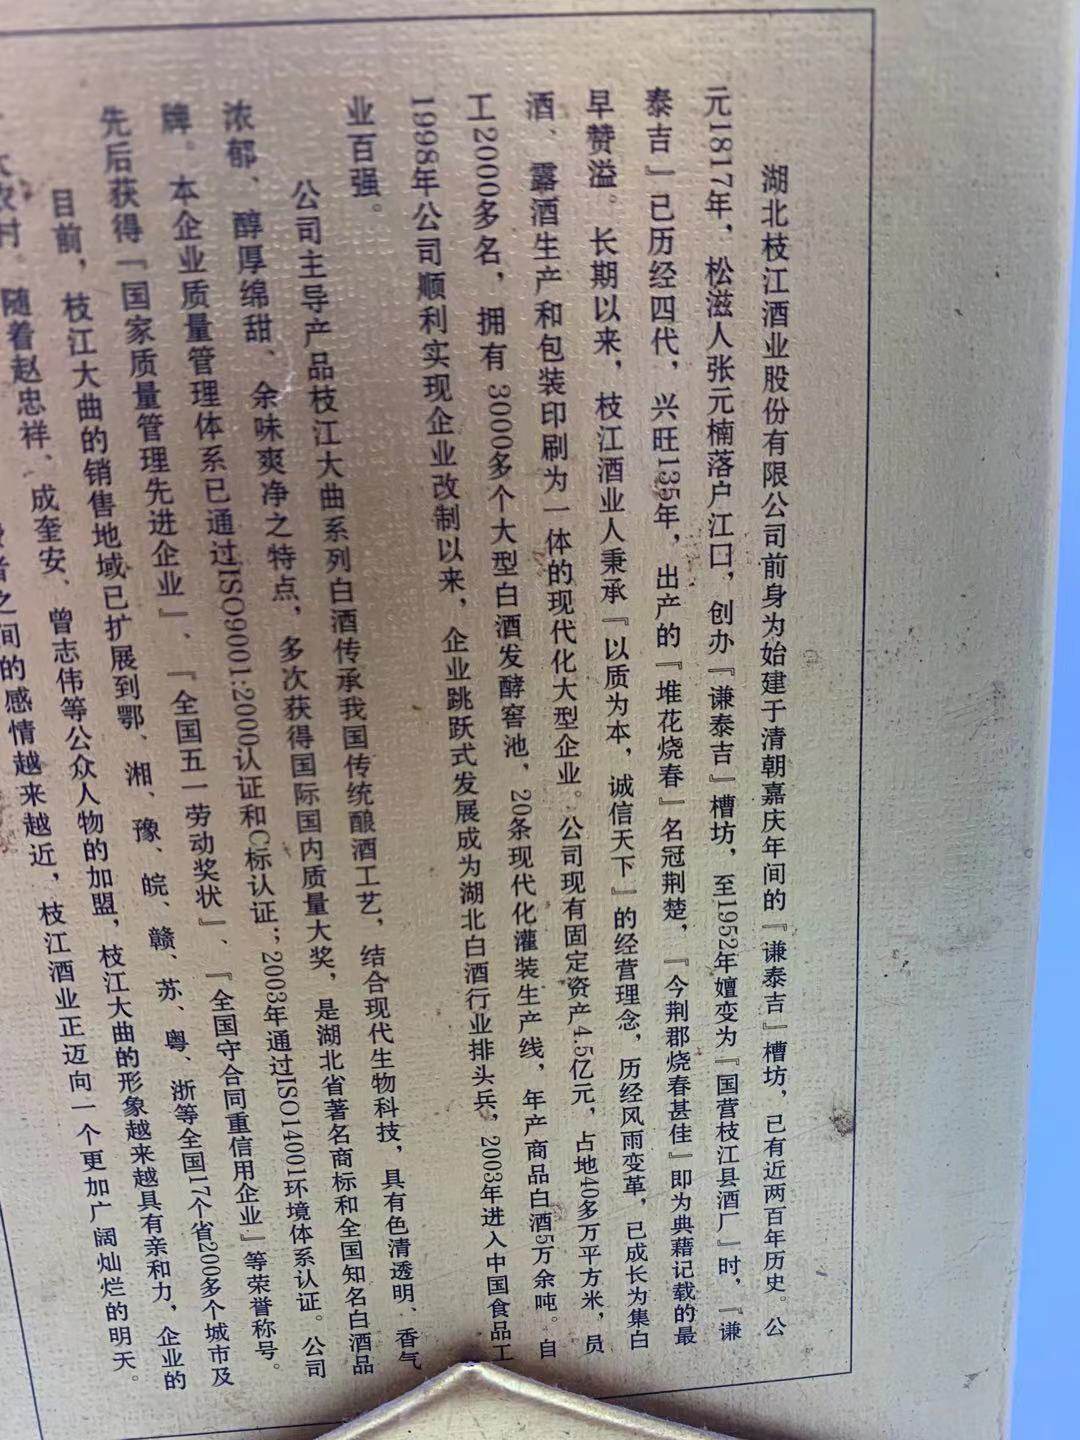 湖北枝江酒业股份有限公司前身为始建于清朝嘉庆年间的『谦泰吉』槽坊，已有近两百年历史。公
元1817年，松滋人张元楠落户江口，创办『谦泰吉』槽坊，至1952年嬗变为『国营枝江县酒厂』时，『谦
泰吉』已历经四代，兴旺135年，出产的『堆花烧春』名冠荆楚，『今荆郡烧春甚佳』即为典藉记载的最
早赞溢。长期以来，枝江酒业人秉承『以质为本，诚信天下』的经营理念，历经风雨变革，已成长为集白
酒、露酒生产和包装印刷为一体的现代化大型企业。公司现有固定资产4.5亿元，占地40多万平方米，员
工2000多名，拥有3000多个大型白酒发酵窖池，20条现代化灌装生产线，年产商品白酒5万余吨。自
1998年公司顺利实现企业改制以来，企业跳跃式发展成为湖北白酒行业排头兵，2003年进入中国食品工
业百强。
公司主导产品枝江大曲系列白酒传承我国传统酿酒工艺，结合现代生物科技，具有色清透明、香气
浓郁、醇厚绵甜、余味爽净之特点，多次获得国际国内质量大奖，是湖北省著名商标和全国知名白酒品
牌。本企业质量管理体系已通过ISO9001:2000认证和C标认证；2003年通过ISO14001环境体系认证。公司
先后获得『国家质量管理先进企业』、『全国五一劳动奖状』、『全国守合同重信用企业』等荣誉称号。
目前，枝江大曲的销售地域已扩展到鄂、湘、豫、皖、赣、苏、粤、浙等全国17个省200多个城市及
农村。随着赵忠祥、成奎安、曾志伟等公众人物的加盟，枝江大曲的形象越来越具有亲和力，企业的
之间的感情越来越近，枝江酒业正迈向一个更加广阔灿烂的明天。